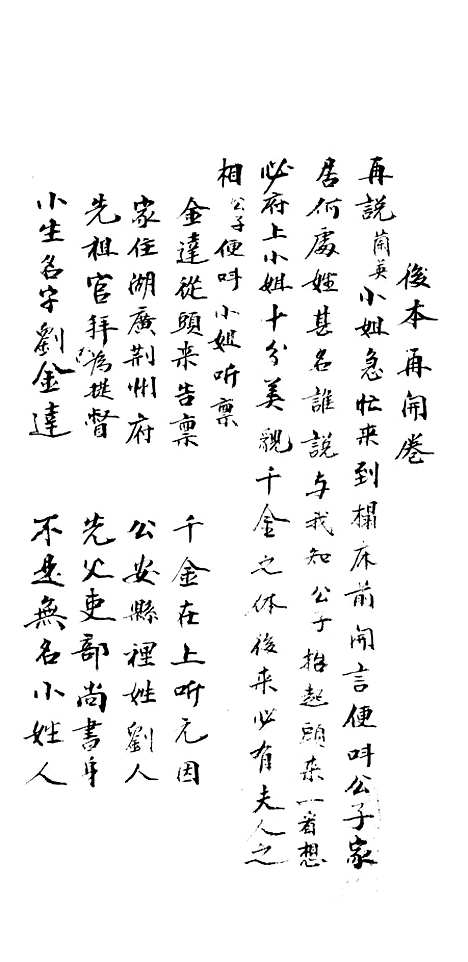 後本再開卷
再說蘭英小姐急忙来到榻床前開言便呌公子家
居何處姓甚名誰說与我知公子抬起頭来一看想
必府上小姐十分美貌千金之体後来必有夫人之
相公子便呌小姐听禀
金達從頭来告禀 千金在上听元因
家住湖廣荆州府 公安縣裡姓劉人
先祖官拜為提督 先父吏部尚書身
小生名字劉金達 不是無名小姓人